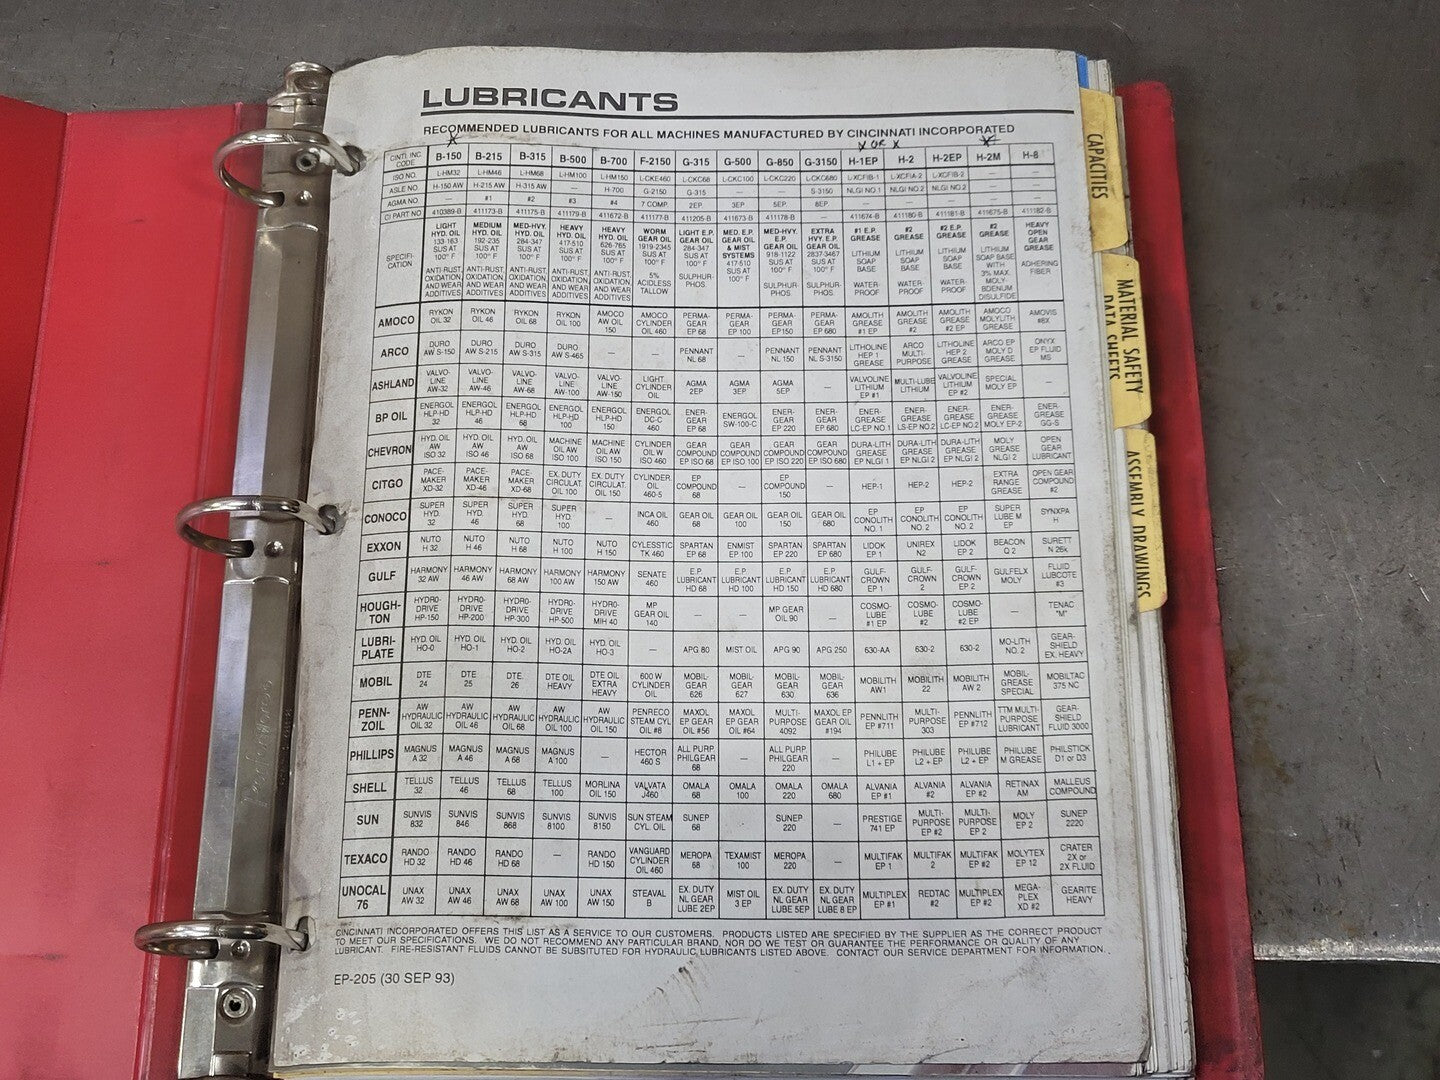 LUBRICANTS
RECOMMENDED LUBRICANTS FOR ALL MACHINES MANUFACTURED BY CINCINNATI INCORPORATED
X X OR X X
CINTI. INC CODE B-150 B-215 B-315 B-500 B-700 F-2150 G-315 G-500 G-850 G-3150 H-1EP H-2 H-2EP H-2M H-8
ISO NO. L-HM32 L-HM46 L-HM68 L-HM100 L-HM150 L-CKE460 L-CKC68 L-CKC100 L-CKC220 L-CKC680 L-XCFIB-1 L-XCFIA-2 L-XCFIB-2 — —
ASLE NO. H-150 AW H-215 AW H-315 AW — H-700 G-2150 G-315 — — S-3150 NLGI NO.1 NLGI NO.2 NLGI NO.2 — —
AGMA NO. — #1 #2 #3 #4 7 COMP. 2EP. 3EP 5EP. 8EP. — — — — —
CI PART NO 410389-B 411173-B 411175-B 411179-B 411672-B 411177-B 411205-B 411673-B 411178-B — 411674-B 411180-B 411181-B 411675-B 411182-B
SPECIFI-CATION LIGHT HYD. OIL 133-163 SUS AT 100° F ANTI-RUST, OXIDATION, AND WEAR ADDITIVES MEDIUM HYD. OIL 192-235 SUS AT 100° F ANTI-RUST, OXIDATION, AND WEAR ADDITIVES MED-HVY. HYD. OIL 284-347 SUS AT 100° F ANTI-RUST, OXIDATION, AND WEAR ADDITIVES HEAVY HYD. OIL 417-510 SUS AT 100° F ANTI-RUST, OXIDATION, AND WEAR ADDITIVES HEAVY HYD. OIL 626-765 SUS AT 100° F ANTI-RUST, OXIDATION, AND WEAR ADDITIVES WORM GEAR OIL 1919-2345 SUS AT 100° F 5% ACIDLESS TALLOW LIGHT E.P. GEAR OIL 284-347 SUS AT 100° F SULPHUR-PHOS. MED. E.P. GEAR OIL & MIST SYSTEMS 417-510 SUS AT 100° F MED-HVY. E.P. GEAR OIL 918-1122 SUS AT 100° F SULPHUR-PHOS. EXTRA HVY. E.P. GEAR OIL 2837-3467 SUS AT 100° F SULPHUR-PHOS. #1 E.P. GREASE LITHIUM SOAP BASE WATER-PROOF #2 GREASE LITHIUM SOAP BASE WATER-PROOF #2 E.P. GREASE LITHIUM SOAP BASE WATER-PROOF #2 GREASE LITHIUM SOAP BASE WITH 3% MAX. MOLY-BDENUM DISULFIDE HEAVY OPEN GEAR GREASE ADHERING FIBER
AMOCO RYKON OIL 32 RYKON OIL 46 RYKON OIL 68 RYKON OIL 100 AMOCO AW OIL 150 AMOCO CYLINDER OIL 460 PERMA-GEAR EP 68 PERMA-GEAR EP 100 PERMA-GEAR EP150 PERMA-GEAR EP 680 AMOLITH GREASE #1 EP AMOLITH GREASE #2 AMOLITH GREASE #2 EP AMOCO MOLYLITH GREASE AMOVIS #8X
ARCO DURO AW S-150 DURO AW S-215 DURO AW S-315 DURO AW S-465 — — PENNANT NL 68 — PENNANT NL 150 PENNANT NL S-3150 LITHOLINE HEP 1 GREASE ARCO MULTI-PURPOSE LITHOLINE HEP 2 GREASE ARCO EP MOLY D GREASE ONYX EP FLUID MS
ASHLAND VALVO-LINE AW-32 VALVO-LINE AW-46 VALVO-LINE AW-68 VALVO-LINE AW-100 VALVO-LINE AW-150 LIGHT CYLINDER OIL AGMA 2EP AGMA 3EP AGMA 5EP — VALVOLINE LITHIUM EP #1 MULTI-LUBE LITHIUM VALVOLINE LITHIUM EP #2 SPECIAL MOLY EP —
BP OIL ENERGOL HLP-HD 32 ENERGOL HLP-HD 46 ENERGOL HLP-HD 68 ENERGOL HLP-HD 100 ENERGOL HLP-HD 150 ENERGOL DC-C 460 ENER-GEAR EP 68 ENERGOL SW-100-C ENER-GEAR EP 220 ENER-GEAR EP 680 ENER-GREASE LC-EP NO.1 ENER-GREASE LS-EP NO.2 ENER-GREASE LC-EP NO.2 ENER-GREASE MOLY EP-2 ENER-GREASE GG-S
CHEVRON HYD. OIL AW ISO 32 HYD. OIL AW ISO 46 HYD. OIL AW ISO 68 MACHINE OIL AW ISO 100 MACHINE OIL AW ISO 150 CYLINDER OIL W ISO 460 GEAR COMPOUND EP ISO 68 GEAR COMPOUND EP ISO 100 GEAR COMPOUND EP ISO 220 GEAR COMPOUND EP ISO 680 DURA-LITH GREASE EP NLGI 1 DURA-LITH GREASE EP NLGI 2 DURA-LITH GREASE EP NLGI 2 MOLY GREASE NLGI 2 OPEN GEAR LUBRICANT
CITGO PACE-MAKER XD-32 PACE-MAKER XD-46 PACE-MAKER XD-68 EX. DUTY CIRCULAT. OIL 100 EX. DUTY CIRCULAT. OIL 150 CYLINDER OIL 460-5 EP COMPOUND 68 — EP COMPOUND 150 — HEP-1 HEP-2 HEP-2 EXTRA RANGE GREASE OPEN GEAR COMPOUND #2
CONOCO SUPER HYD. 32 SUPER HYD. 46 SUPER HYD. 68 SUPER HYD. 100 — INCA OIL 460 GEAR OIL 68 GEAR OIL 100 GEAR OIL 150 GEAR OIL 680 EP CONOLITH NO. 1 EP CONOLITH NO. 2 EP CONOLITH NO. 2 SUPER LUBE M EP SYNXPA H
EXXON NUTO H 32 NUTO H 46 NUTO H 68 NUTO H 100 NUTO H 150 CYLESSTIC TK 460 SPARTAN EP 68 ENMIST EP 100 SPARTAN EP 220 SPARTAN EP 680 LIDOK EP 1 UNIREX N2 LIDOK EP 2 BEACON Q 2 SURETT N 26k
GULF HARMONY 32 AW HARMONY 46 AW HARMONY 68 AW HARMONY 100 AW HARMONY 150 AW SENATE 460 E.P. LUBRICANT HD 68 E.P. LUBRICANT HD 100 E.P. LUBRICANT HD 150 E.P. LUBRICANT HD 680 GULF-CROWN EP 1 GULF-CROWN 2 GULF-CROWN EP 2 GULFELX MOLY FLUID LUBCOTE #3
HOUGH-TON HYDRO-DRIVE HP-150 HYDRO-DRIVE HP-200 HYDRO-DRIVE HP-300 HYDRO-DRIVE HP-500 HYDRO-DRIVE MIH 40 MP GEAR OIL 140 — — MP GEAR OIL 90 — COSMO-LUBE #1 EP COSMO-LUBE #2 COSMO-LUBE #2 EP — TENAC "M"
LUBRI-PLATE HYD. OIL HO-0 HYD. OIL HO-1 HYD. OIL HO-2 HYD. OIL HO-2A HYD. OIL HO-3 — APG 80 MIST OIL APG 90 APG 250 630-AA 630-2 630-2 MO-LITH NO. 2 GEAR-SHIELD EX. HEAVY
MOBIL DTE 24 DTE 25 DTE. 26 DTE OIL HEAVY DTE OIL EXTRA HEAVY 600 W CYLINDER OIL MOBIL-GEAR 626 MOBIL-GEAR 627 MOBIL-GEAR 630 MOBIL-GEAR 636 MOBILITH AW1 MOBILITH 22 MOBILITH AW 2 MOBIL-GREASE SPECIAL MOBILTAC 375 NC
PENN-ZOIL AW HYDRAULIC OIL 32 AW HYDRAULIC OIL 46 AW HYDRAULIC OIL 68 AW HYDRAULIC OIL 100 AW HYDRAULIC OIL 150 PENRECO STEAM CYL OIL #8 MAXOL EP GEAR OIL #56 MAXOL EP GEAR OIL #64 MULTI-PURPOSE 4092 MAXOL EP GEAR OIL #194 PENNLITH EP #711 MULTI-PURPOSE 303 PENNLITH EP #712 TTM MULTI-PURPOSE LUBRICANT GEAR-SHIELD FLUID 3000
PHILLIPS MAGNUS A 32 MAGNUS A 46 MAGNUS A 68 MAGNUS A 100 — HECTOR 460 S ALL PURP. PHILGEAR 68 — ALL PURP. PHILGEAR 220 — PHILUBE L1 + EP PHILUBE L2 + EP PHILUBE L2 + EP PHILUBE M GREASE PHILSTICK D1 or D3
SHELL TELLUS 32 TELLUS 46 TELLUS 68 TELLUS 100 MORLINA OIL 150 VALVATA J460 OMALA 68 OMALA 100 OMALA 220 OMALA 680 ALVANIA EP #1 ALVANIA #2 ALVANIA EP #2 RETINAX AM MALLEUS COMPOUND
SUN SUNVIS 832 SUNVIS 846 SUNVIS 868 SUNVIS 8100 SUNVIS 8150 SUN STEAM CYL. OIL SUNEP 68 — SUNEP 220 — PRESTIGE 741 EP MULTI-PURPOSE EP #2 MULTI-PURPOSE EP 2 MOLY EP 2 SUNEP 2220
TEXACO RANDO HD 32 RANDO HD 46 RANDO HD 68 — RANDO HD 150 VANGUARD CYLINDER OIL 460 MEROPA 68 TEXAMIST 100 MEROPA 220 — MULTIFAK EP 1 MULTIFAK 2 MULTIFAK EP #2 MOLYTEX EP 12 CRATER 2X or 2X FLUID
UNOCAL 76 UNAX AW 32 UNAX AW 46 UNAX AW 68 UNAX AW 100 UNAX AW 150 STEAVAL B EX. DUTY NL GEAR LUBE 2EP MIST OIL 3 EP EX. DUTY NL GEAR LUBE 5EP EX. DUTY NL GEAR LUBE 8 EP MULTIPLEX EP #1 REDTAC #2 MULTIPLEX EP #2 MEGA-PLEX XD #2 GEARITE HEAVY
CINCINNATI INCORPORATED OFFERS THIS LIST AS A SERVICE TO OUR CUSTOMERS. PRODUCTS LISTED ARE SPECIFIED BY THE SUPPLIER AS THE CORRECT PRODUCT
TO MEET OUR SPECIFICATIONS. WE DO NOT RECOMMEND ANY PARTICULAR BRAND, NOR DO WE TEST OR GUARANTEE THE PERFORMANCE OR QUALITY OF ANY
LUBRICANT. FIRE-RESISTANT FLUIDS CANNOT BE SUBSITUTED FOR HYDRAULIC LUBRICANTS LISTED ABOVE. CONTACT OUR SERVICE DEPARTMENT FOR INFORMATION.
EP-205 (30 SEP 93)
CAPACITIES
MATERIAL SAFETY
DATA SHEETS
ASSEMBLY DRAWINGS